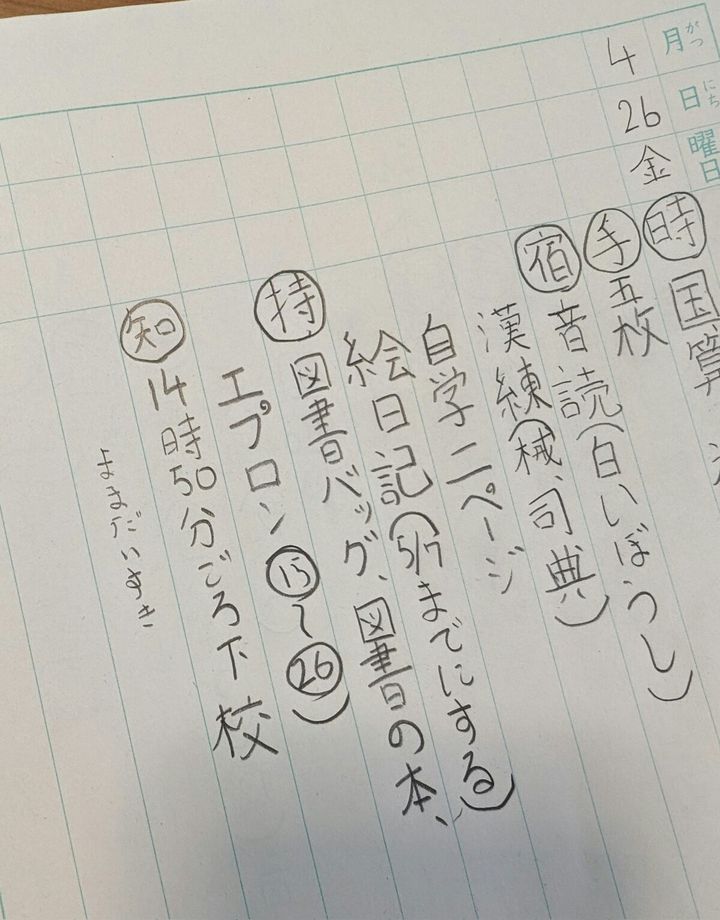 月がつ日にち曜日
4 26 金
㊡時 国算
手 五枚
宿 音読(白いぼうし)
漢練(械、司典)
自学二ページ
絵日記(5/7までにする)
持 図書バッグ、図書の本、
エプロン⑮〜㉖)
知 14時50分ごろ下校
ままだいすき